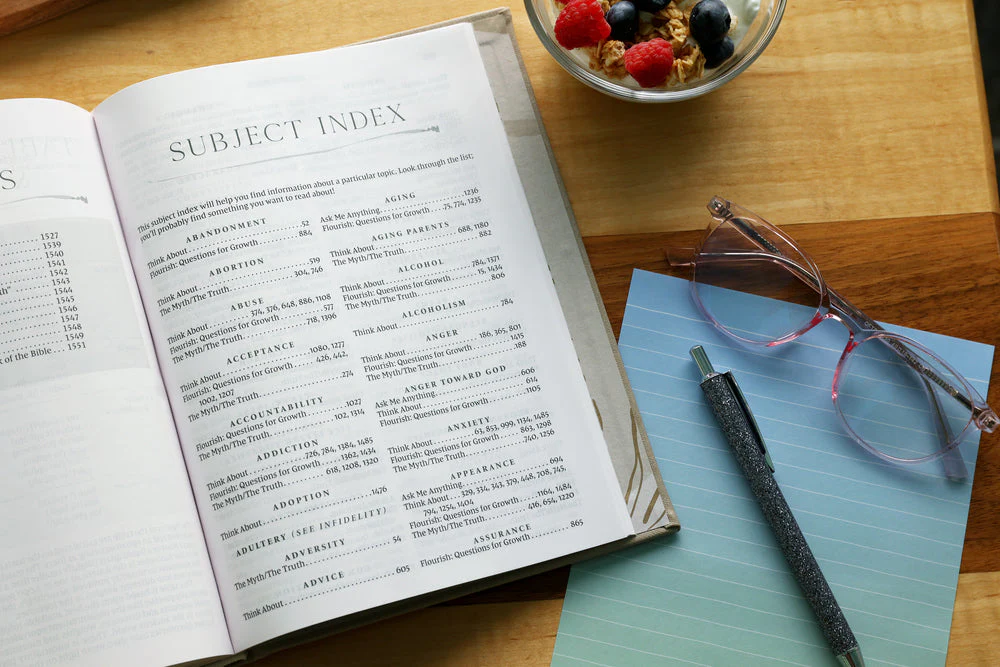 S
1527
1539
1540
1541
1542
1543
1544
1545
1546
1547
1548
1549
of the Bible 1551
SUBJECT INDEX
This subject index will help you find information about a particular topic. Look through the list;
you'll probably find something you want to read about!
ABANDONMENT
Think About 52
Flourish: Questions for Growth 884
ABORTION
Think About 519
The Myth/The Truth 304, 746
ABUSE
Think About 374, 376, 648, 886, 1108
Flourish: Questions for Growth 577
The Myth/The Truth 718, 1396
ACCEPTANCE
Think About 1080, 1277
Flourish: Questions for Growth 426, 442,
1002, 1207
The Myth/The Truth 274
ACCOUNTABILITY
Flourish: Questions for Growth 1027
The Myth/The Truth 102, 1314
ADDICTION
Think About 726, 784, 1384, 1485
Flourish: Questions for Growth 1362, 1434
The Myth/The Truth 618, 1208, 1320
ADOPTION
Think About 1476
ADULTERY (SEE INFIDELITY)
ADVERSITY
The Myth/The Truth 54
ADVICE
Think About 605
AGING
Ask Me Anything 1236
Flourish: Questions for Growth 75, 774, 1235
AGING PARENTS
Think About 688, 1180
The Myth/The Truth 882
ALCOHOL
Think About 784, 1321
Flourish: Questions for Growth 15, 1434
The Myth/The Truth 806
ALCOHOLISM
Think About 784
ANGER
Think About 186, 365, 801
Flourish: Questions for Growth 1415
The Myth/The Truth 188
ANGER TOWARD GOD
Ask Me Anything 606
Think About 614
Flourish: Questions for Growth 1105
ANXIETY
Think About 63, 853, 999, 1134, 1485
Flourish: Questions for Growth 863, 1298
The Myth/The Truth 740, 1256
APPEARANCE
Ask Me Anything 694
Think About 329, 334, 343, 379, 448, 708, 745,
794, 1254, 1404
Flourish: Questions for Growth 1164, 1484
The Myth/The Truth 416, 654, 1220
ASSURANCE
Flourish: Questions for Growth 865